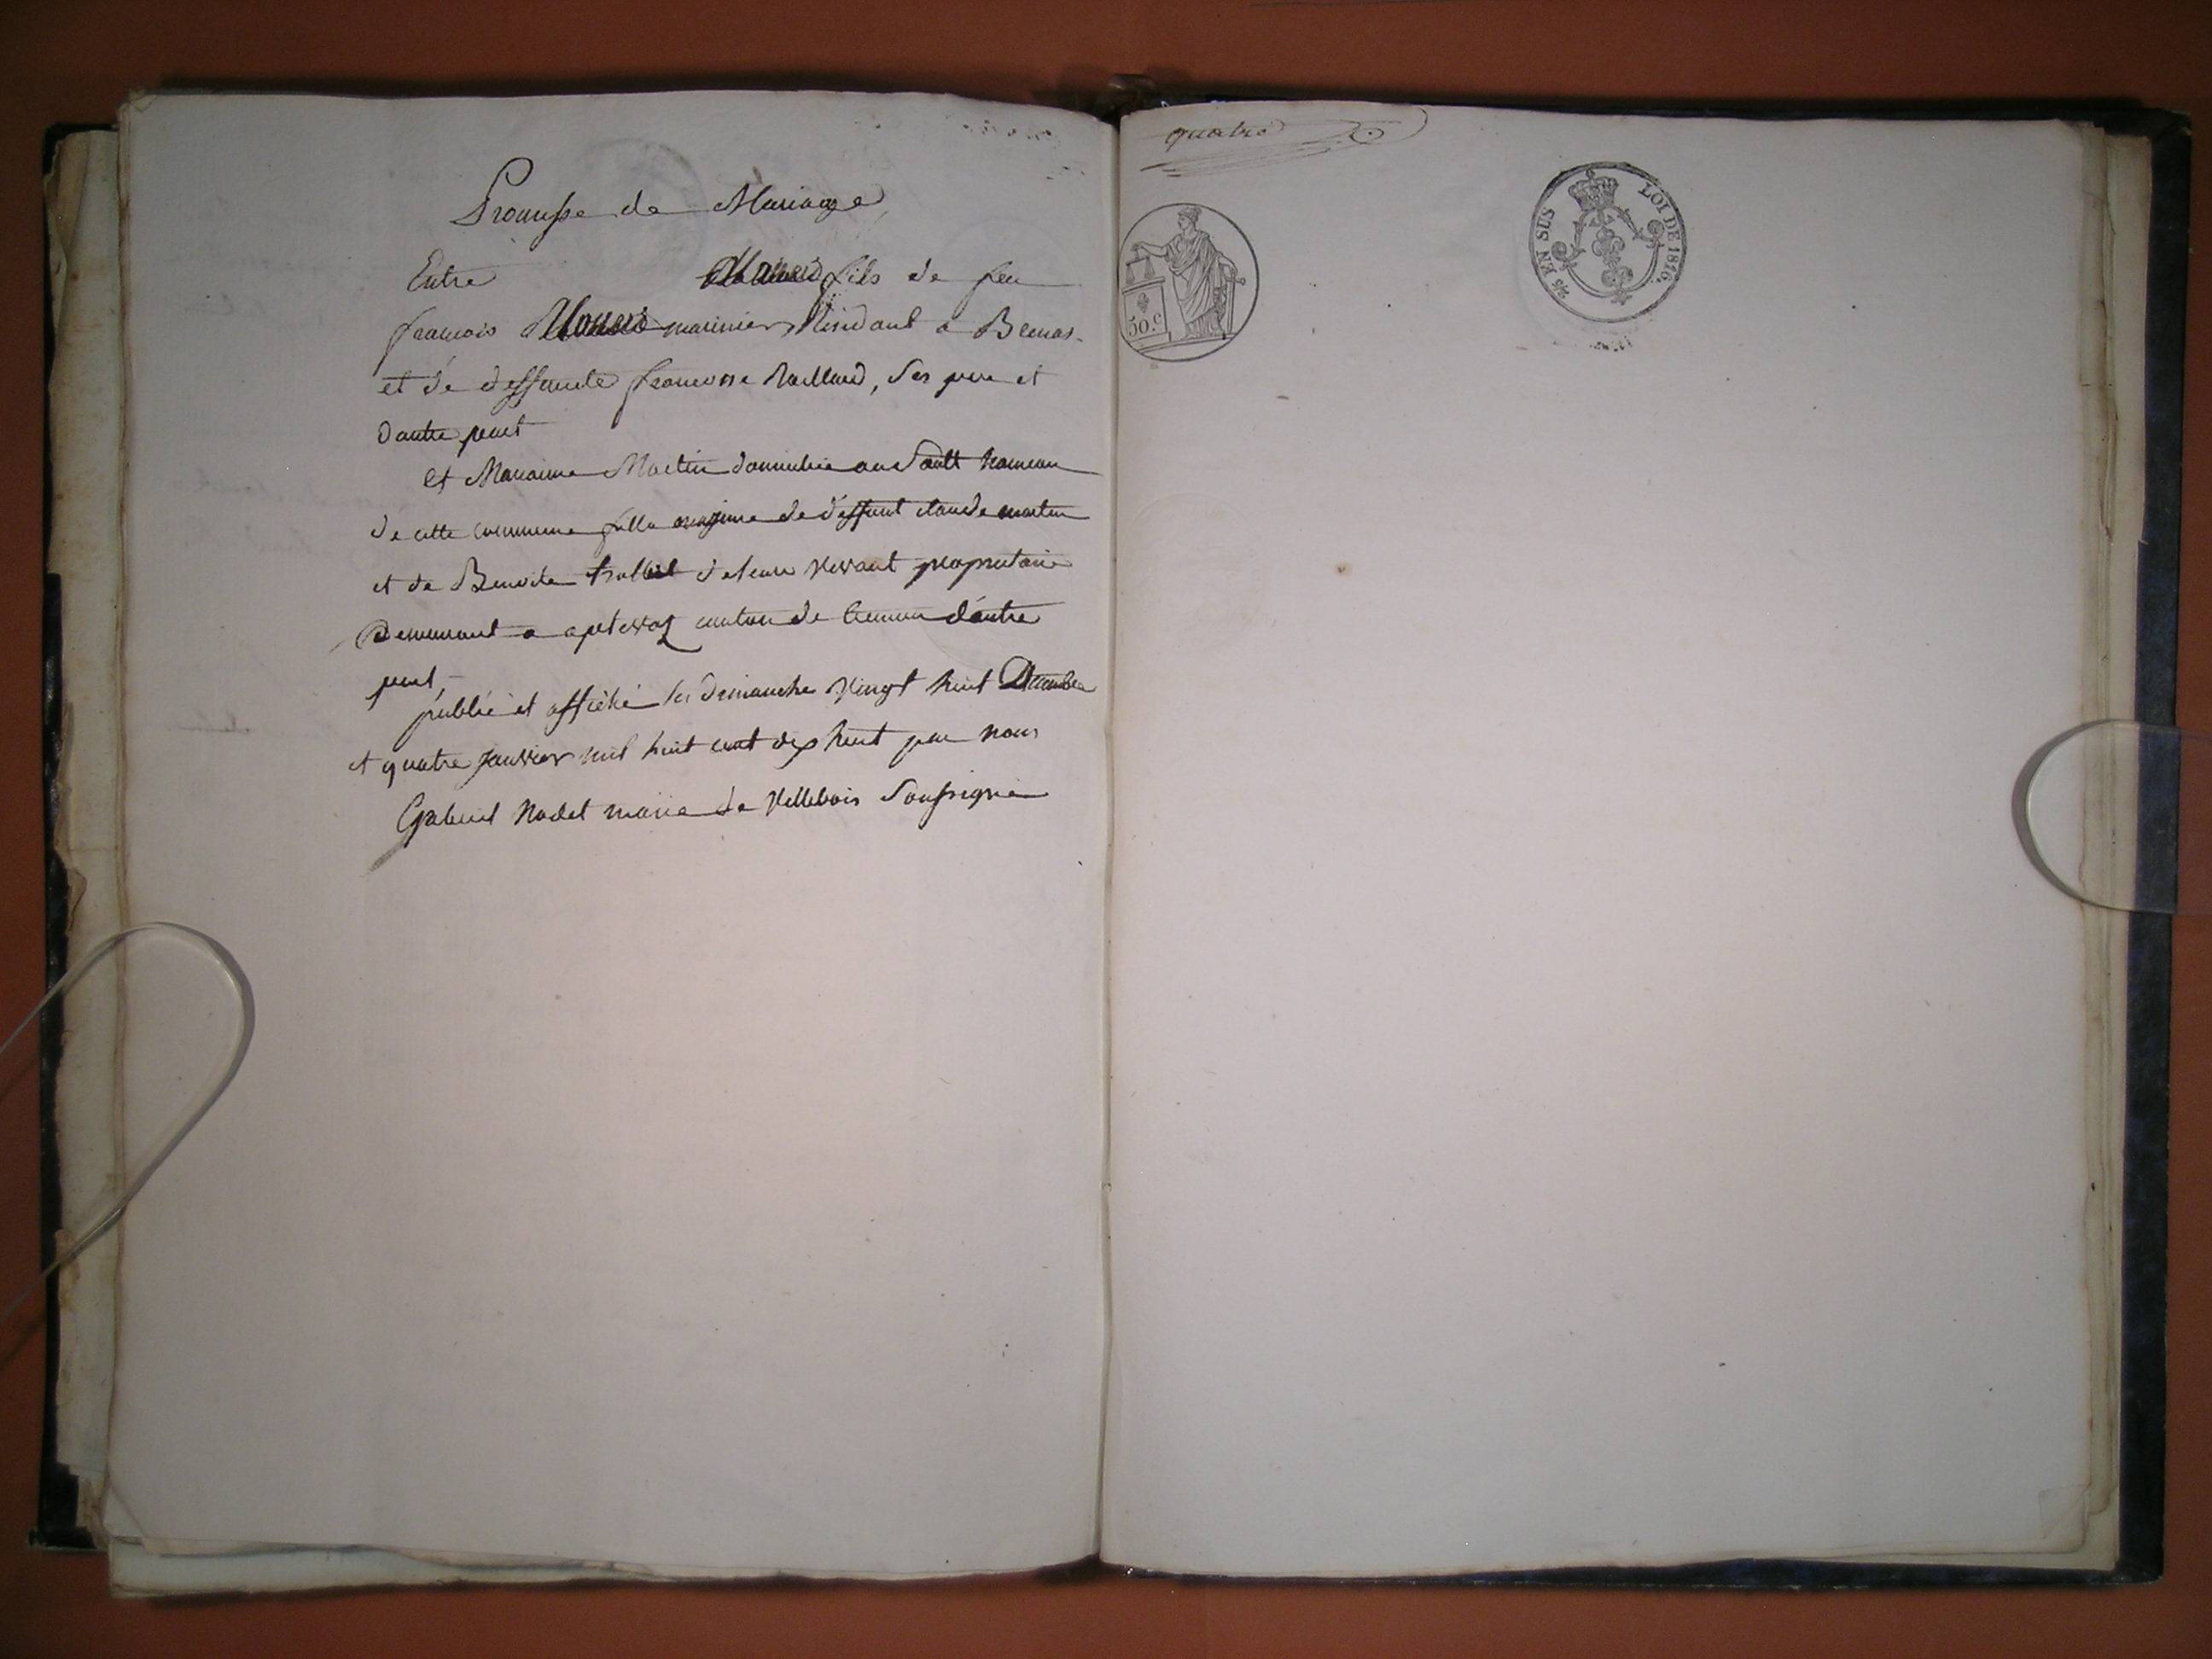 Promesse de Mariage
Entre fils de feu
francois marinier Résidant a Brenas
et de deffunte francoise Raillard, Ses pere et
dautre part
et Marianne Martin domiciliée au Sault hameau
de cette commune fille majeure de deffunt claude martin
et de Benoite deleur Vivant proprietaire
Demeurant a canton de d'autre
part
publié et affiché les dimanche Vingt huit Décembre
et quatre janvier mil huit cent dix huit par nous
Gabriel Nodet maire de Villebois Soussigné
quatre
50.c
¼ EN SUS
LOI DE 1816.